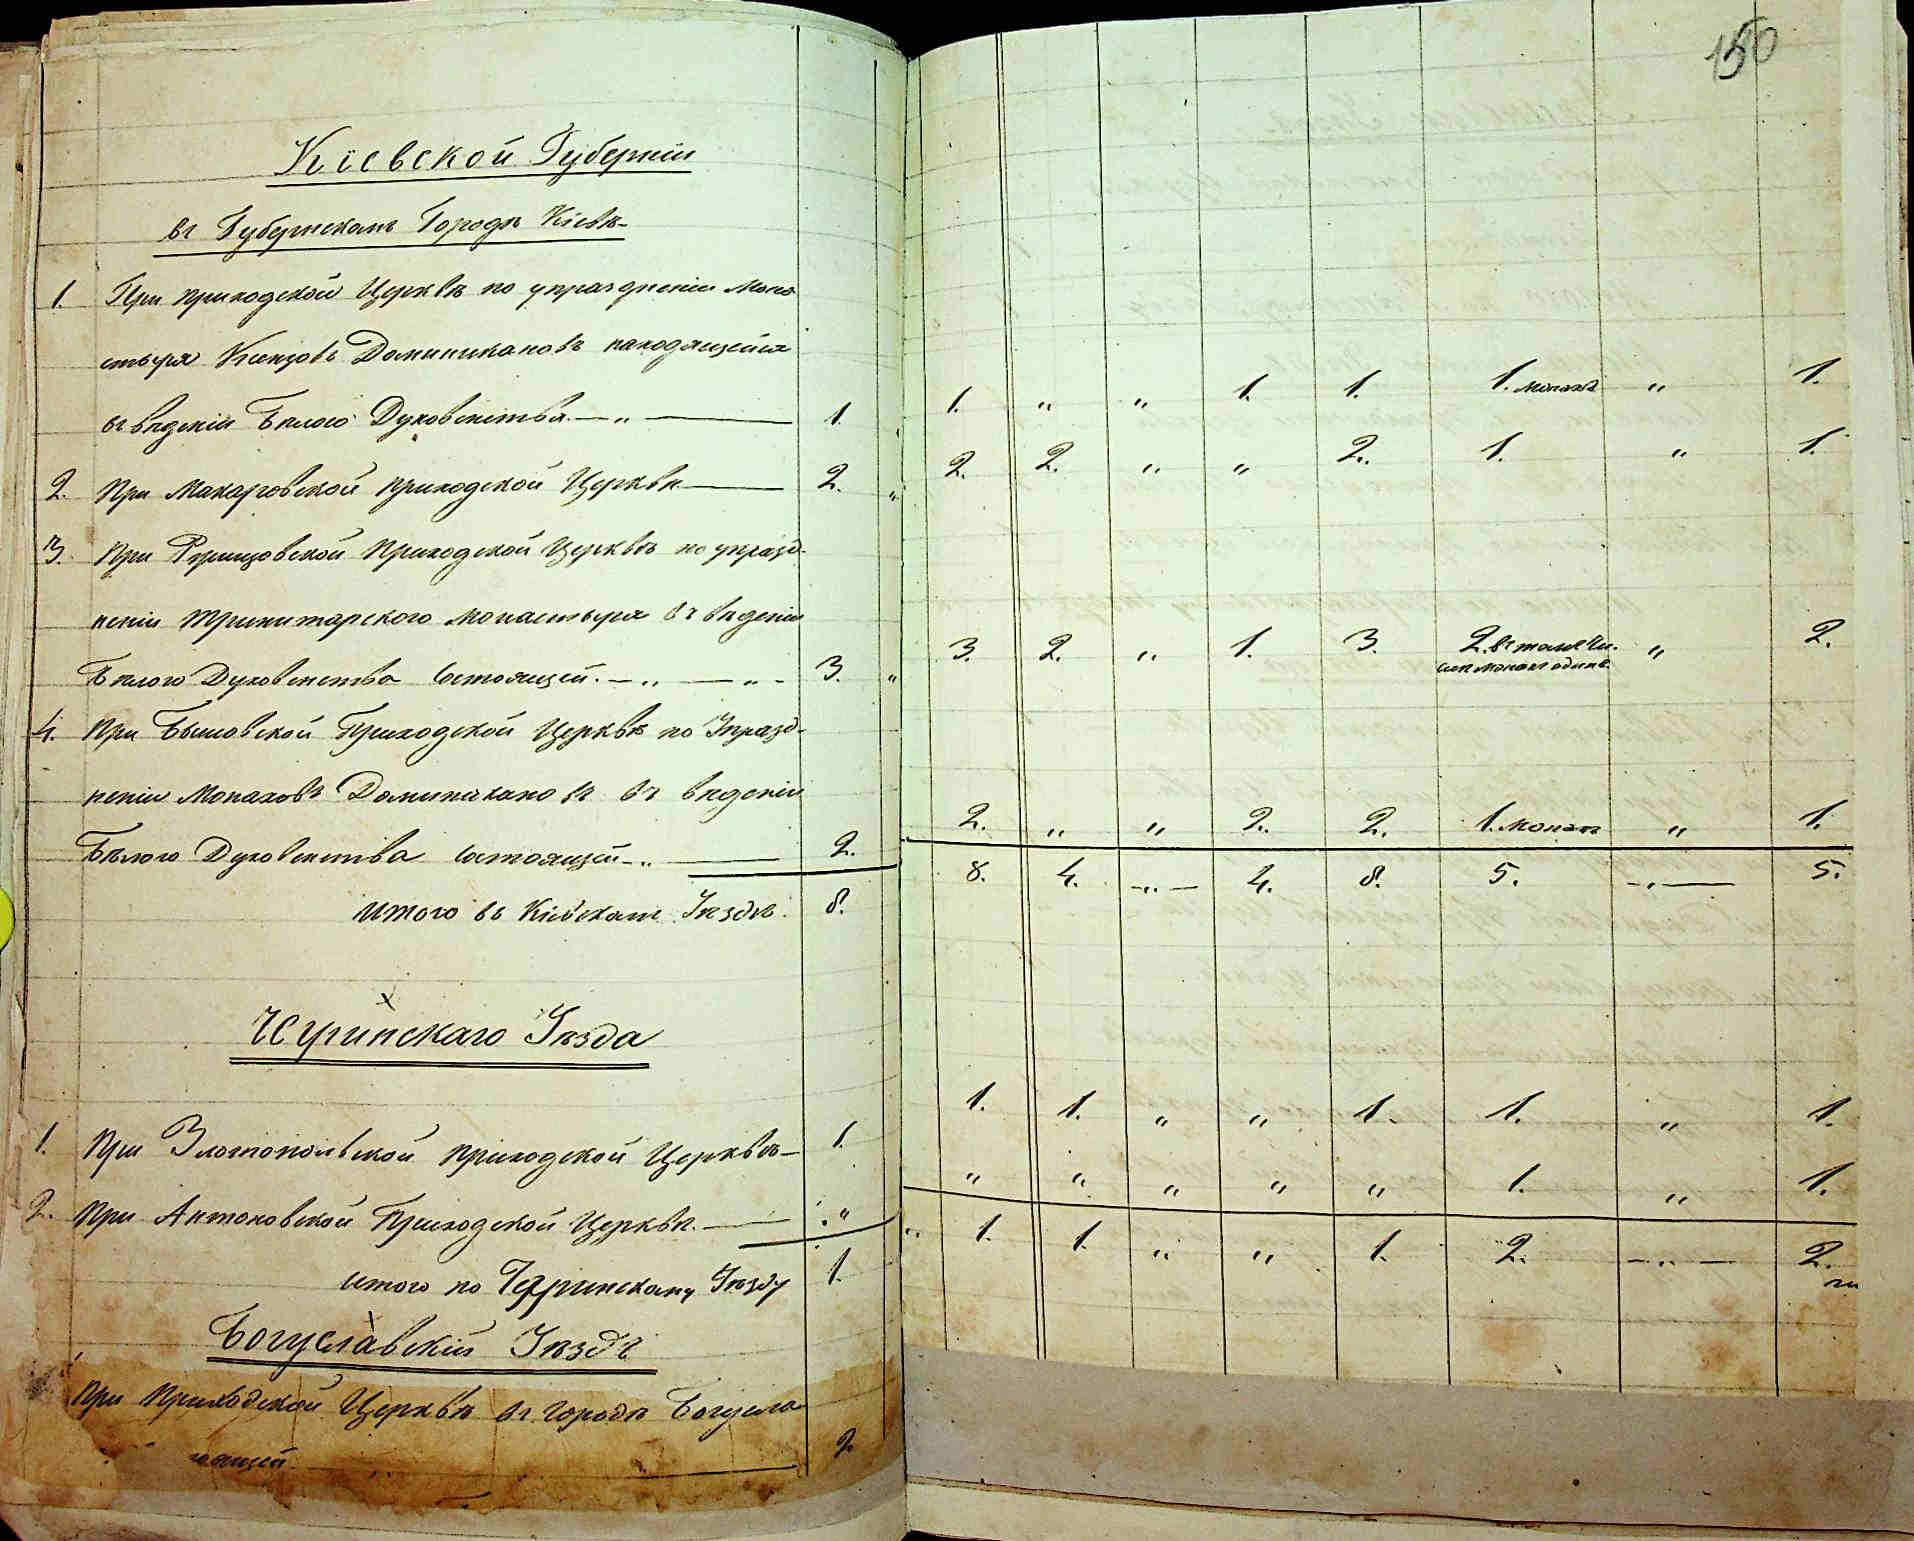 150
Кіевской Губерніи
въ Губернскомъ Городѣ Кіевѣ
1. При приходской Церквѣ по упраздненіи Мона- 1. 1. " " 1. 1. 1. монахъ " 1.
стыря Ксензовъ Доминикановъ находящейся
въ вѣденіи Бѣлаго Духовенства 
2. При Макаровской приходской Церквѣ 2. " 2. 2. " " 2. 1. " 1.
3. При Приходской Церквѣ по упразд-
неніи Тринитарского Монастыря въ вѣденіи
Бѣлого Духовенства состоящей. 3. " 3. 2. " 1. 3. 2. въ томъ чи- " 2.
слѣ монахъ одинъ
4. При Бышовской Приходской Церквѣ по Упразд-
неніи Монаховъ Доминикановъ въ вѣденіи
Бѣлого Духовенства состоящей 2. 2. " " 2. 2. 1. монахъ " 1.
итого въ Кіевскомъ Уѣздѣ. 8. 8. 4. " 4. 8. 5. " 5.
Чегринскаго Уѣзда
1. При Златопольской приходской Церквѣ 1. 1. 1. " " 1. 1. " 1.
2. При Антоновской Приходской Церквѣ. " " " " " " 1. " 1.
итого по Чегринскому Уѣзду 1. " 1. 1. " " 1. 2. " 2.
Богуславскій Уѣздъ
При Приходской Церквѣ въ городѣ Богусла-
2.